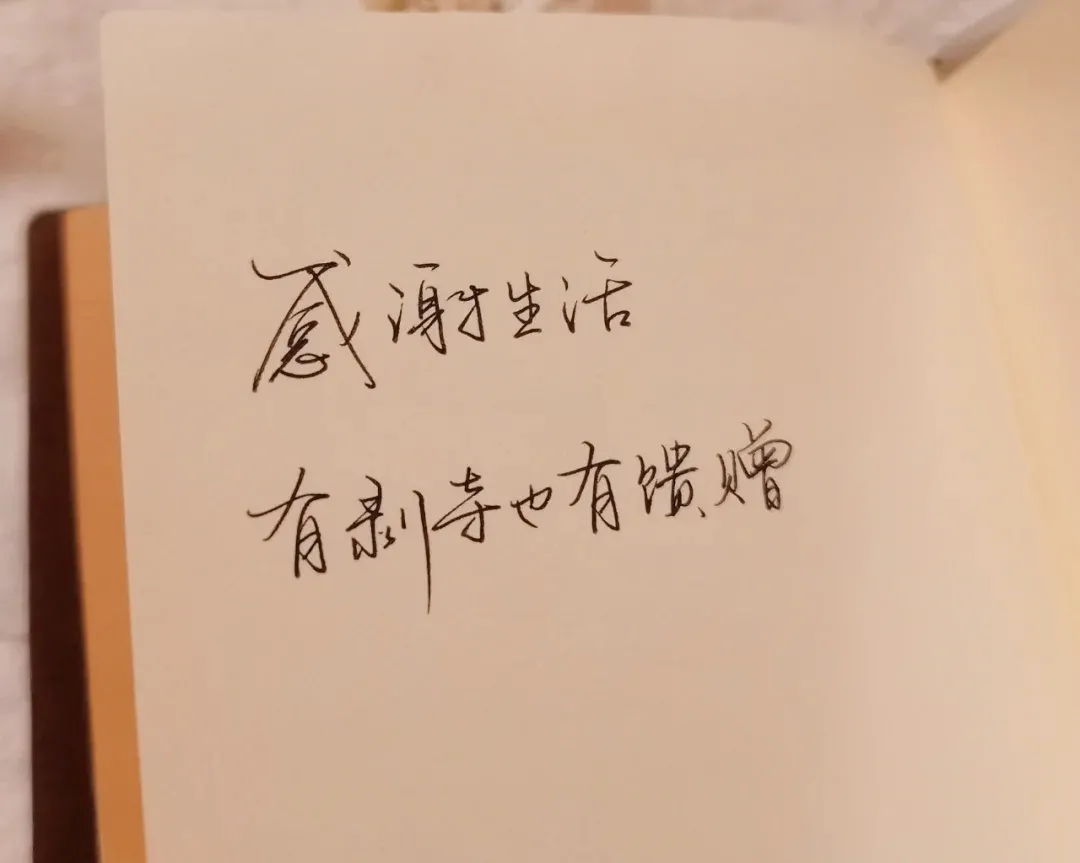 感谢生活
有剥夺也有馈赠